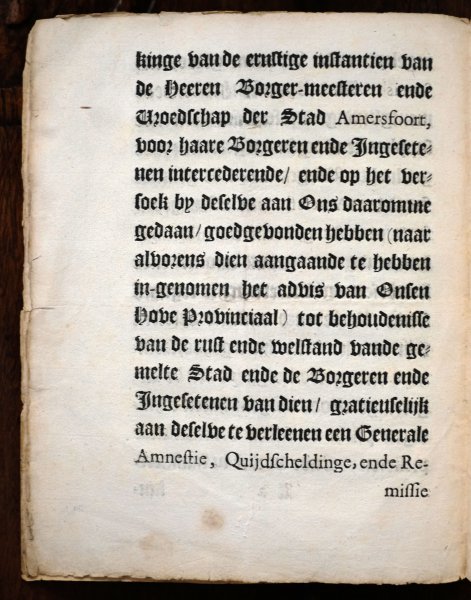 kinge van de ernstige instantien van
de Heeren Borger-meesteren ende
Vroedschap der Stad Amersfoort,
voor haare Borgeren ende Ingesete-
nen intercederende/ ende op het ver-
soek by deselve aan Ons daaromme
gedaan/ goedgevonden hebben (naar
alvorens dien aangaande te hebben
in-genomen het advis van Onsen
Hove Provinciaal) tot behoudenisse
van de rust ende welstand vande ge-
melte Stad ende de Borgeren ende
Ingesetenen van dien/ gratieuselijk
aan deselve te verleenen een Generale
Amnestie, Quijdscheldinge, ende Re-
missie